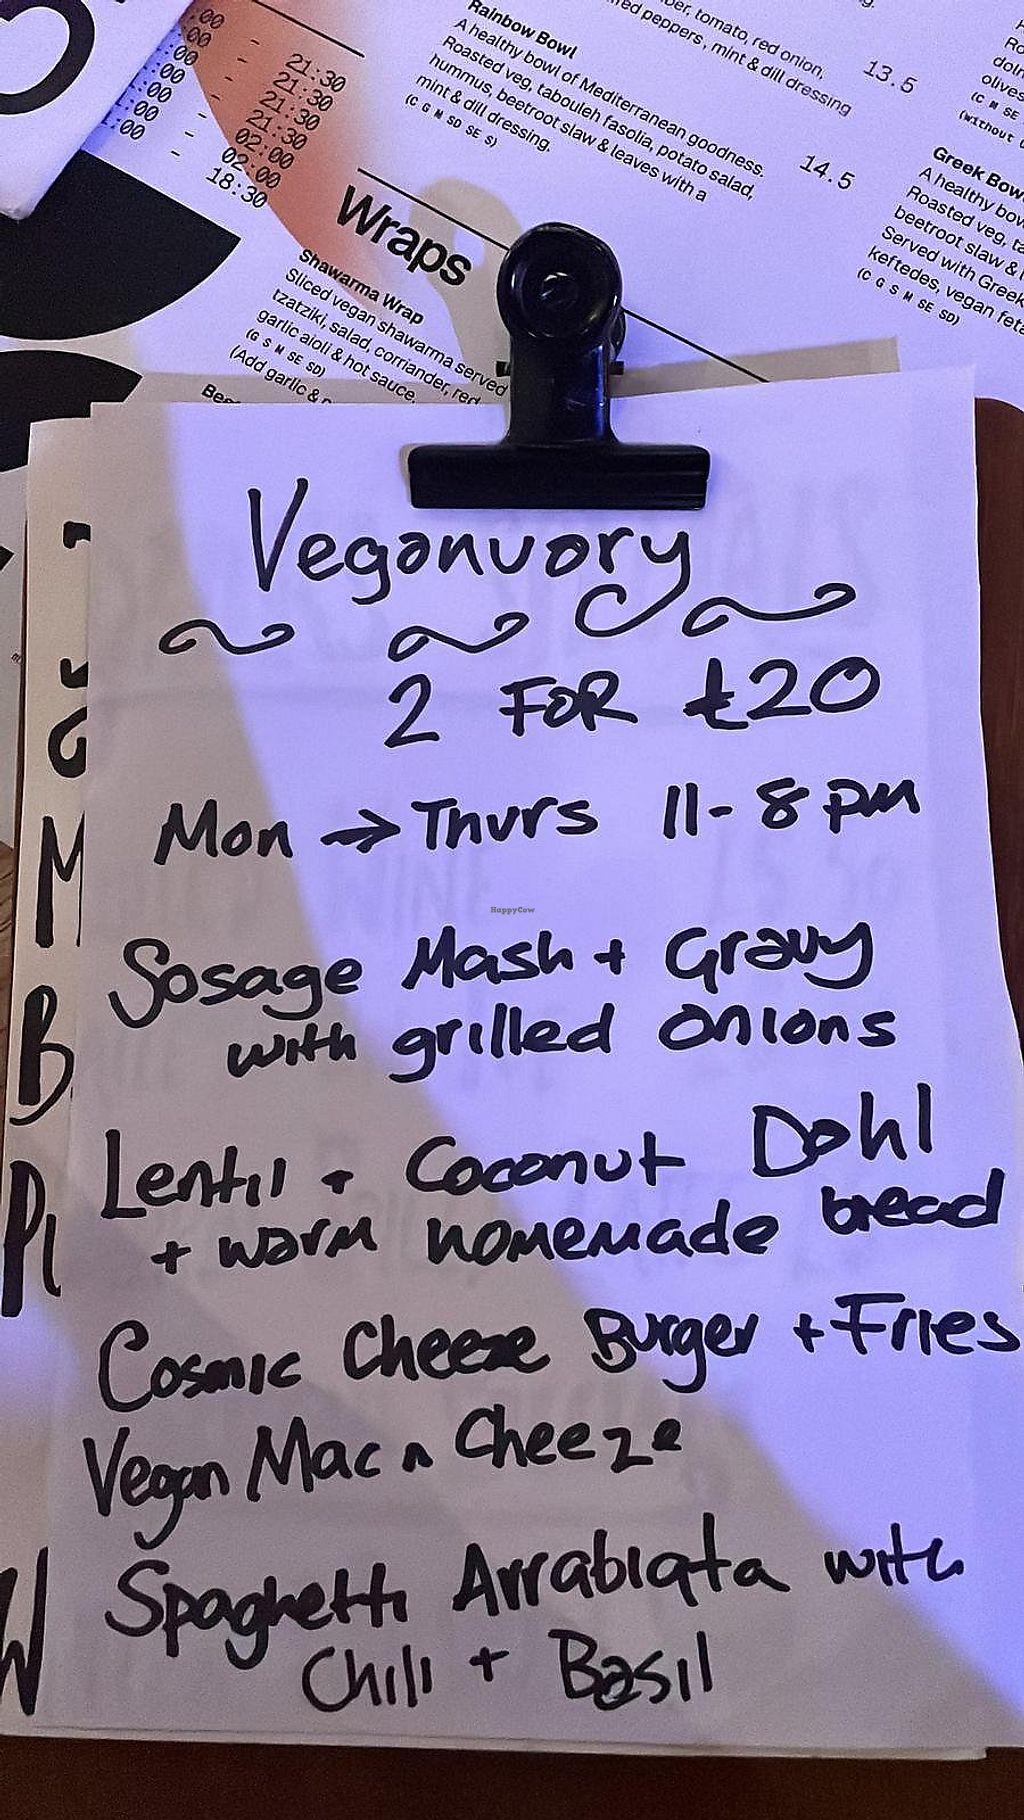 .00 - 21:30
:00 - 21:30
:00 - 21:30
:00 - 21:30
:00 - 02:00
:00 - 02:00
:00 - 18:30
tomato, red onion,
red peppers, mint & dill dressing
13.5
Rainbow Bowl
A healthy bowl of Mediterranean goodness.
Roasted veg, tabouleh fasolia, potato salad,
hummus, beetroot slaw & leaves with a
mint & dill dressing.
(C G M SD SE S)
14.5
olives
(C M SE
(Without
Greek Bow
A healthy bow
Roasted veg, ta
beetroot slaw &
Served with Greek
keftedes, vegan feta
(C G S M SE SD)
Wraps
Shawarma Wrap
Sliced vegan shawarma served
tzatziki, salad, corriander, red
garlic aioli & hot sauce.
(G S M SE SD)
(Add garlic &
Veganuary
2 FOR £20
Mon → Thurs 11-8pm
Sosage Mash + Gravy
with grilled onions
Lentil + Coconut Dahl
+ warm homemade bread
Cosmic Cheeze Burger + Fries
Vegan Mac n Cheeze
Spaghetti Arrabiata with
Chili + Basil
HappyCow